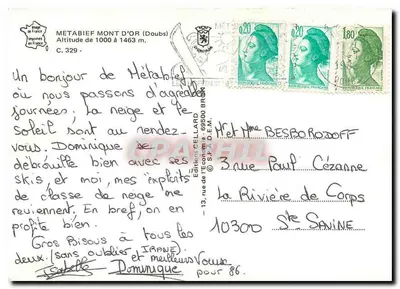 METABIEF MONT D'OR (Doubs)
Altitude de 1000 à 1463 m.
C. 329 -
Un bonjour de Métabief
où nous passons d'agréables
journées. La neige et le
soleil sont au rendez-
vous. Dominique se
débrouille bien avec ses
skis, et moi, mes exploits
de classe de neige me
reviennent. En bref, on en
profite bien.
Gros Bisous à tous les
deux (sans oublier IRANE)
et meilleurs Voeux
pour 86.
Isabelle Dominique
Editions CELLARD
- 13, rue de l'Economie, 69500 BRON
0,20
0,20
1,80
M et Mme BESBORODOFF
3 rue Paul Cézanne
La Rivière de Corps
10300 Ste Savine